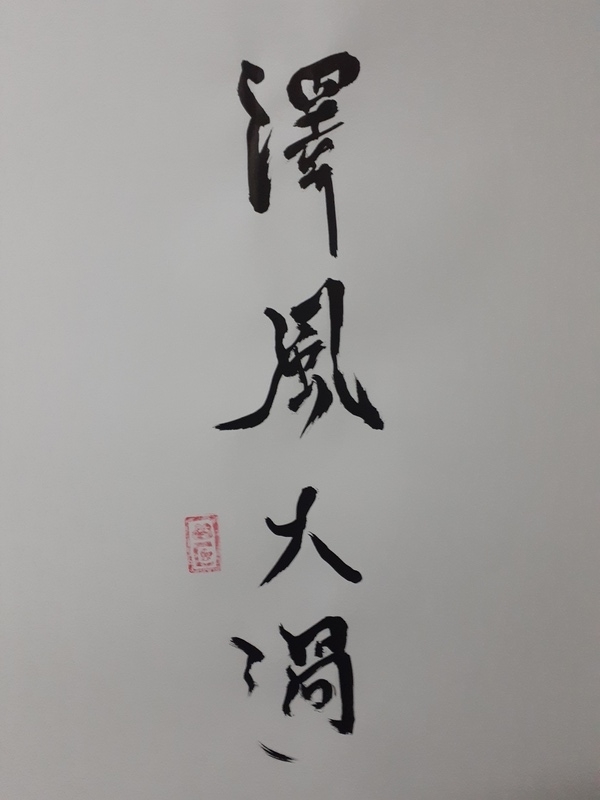 澤風大過